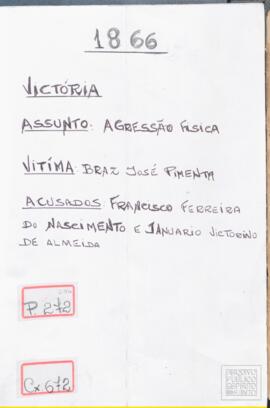 1866
VICTÓRIA
ASSUNTO: AGRESSÃO FISICA
VITÍMA: BRAZ JOSÉ PIMENTA
ACUSADOS: FRANCISCO FERREIRA
DO NASCIMENTO E JANUARIO VICTORINO
DE ALMEIDA
P 272
Cx. 672
ARQUIVO
PÚBLICO
ESPÍRITO
SANTO